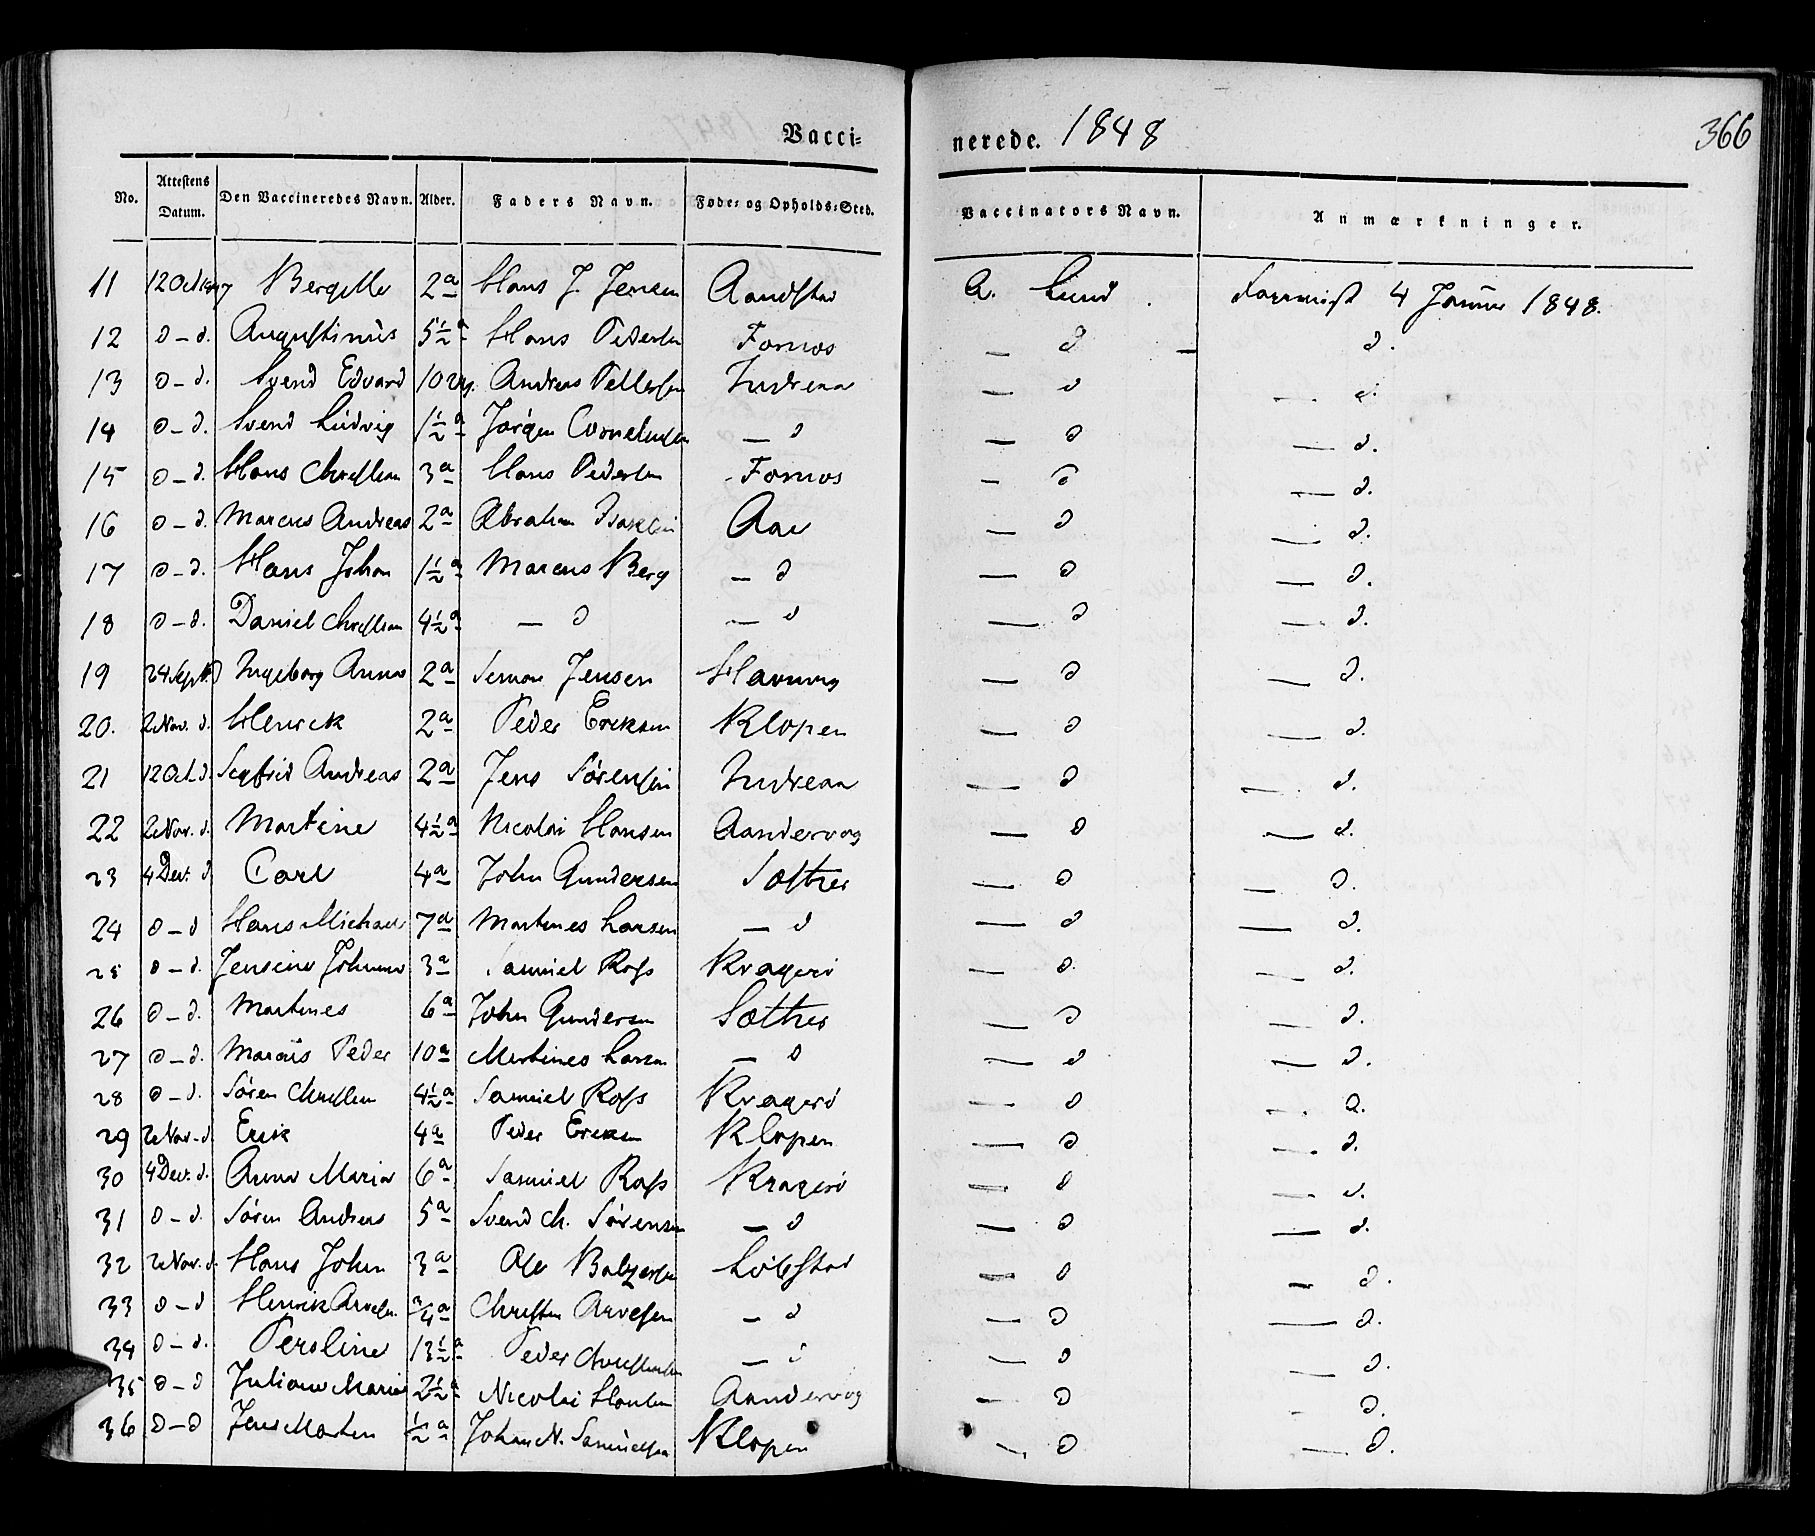 Vacci-
nerede. 1848
366
No. Attestens Datum. Den Vaccineredes Navn. Alder. Faders Navn. Føde- og Opholds-Sted. Vaccinators Navn. Anmærkninger.
11 12 Oct 1847 2 a Hans J. Jensen Aandstad A. Lund 4 Januar 1848.
12 d – d. Augustinus 5½ a Hans Pedersen Fornøs — d — d.
13 d – d. Svend Edvard 10 Andreas Pettersen Indreaa — d — d.
14 d – d. Svend Ludvig 1½ a Jørgen Corneliusen — d — d — d.
15 d – d. Hans Christian 3 a Hans Pedersen Fornøs — d — d.
16 d – d. Marcus Andreas 2 a Abraham Isaksen Aae — d — d.
17 d – d. Hans Johan 1½ a Marcus Berg — d — d — d.
18 d – d. Daniel Christian 4½ a — d — d — d — d.
19 24 Sept. d Ingeborg Anna 2 a Simon Jensen — d — d.
20. 2 Nov. d. Henrick 2 a Peder Ericksen Klopen — d — d.
21 12 Oct. d. Sigfrid Andreas 2 a Jens Sørensen Indreaa — d — d.
22 2 Nov. d. Martine 4½ a Nicolai Hansen Aandervog — d — d.
23 4 Dec. d Carl 4 a John Gundersen Sættres — d — d.
24 d – d Hans Michael 7 a Martines Larsen — d — d — d.
25 d – d. Jensine Johanna 3 a Samuel Rofs Krageri — d. — d.
26 d – d. Martines 6 a John Gundersen Sættres — d — d.
27 d – d. Marcus Peder 10 a Martines Larsen — d — d — d.
28 d – d. Søren Christian 4½ a Samuel Rofs Krageri — d — d.
29 2 Nov – d. Erik 4 a Peder Ericksen Klopen — d — d.
30 4 Dec. d. Anna Maria 6 a Samuel Rofs Krageri — d — d.
31 d – d. Søren Andreas 5 a Svend Ch. Sørensen — d — d — d.
32 2 Nov. d. Hans John 3 a Ole Balzersen Løbstad — d — d.
33 d – d Henrik Arvesen ¾ a Christen Arvesen — d — d — d.
34 d – d. Persline 13½ a Peder Christensen — d — d — d.
35 d – d Juliane Marie 2½ a Nicolai Hansen Aandervog — d — d.
36 d – d Jens Morten ½ a Johan N. Samuelsen Klopen — d — d.